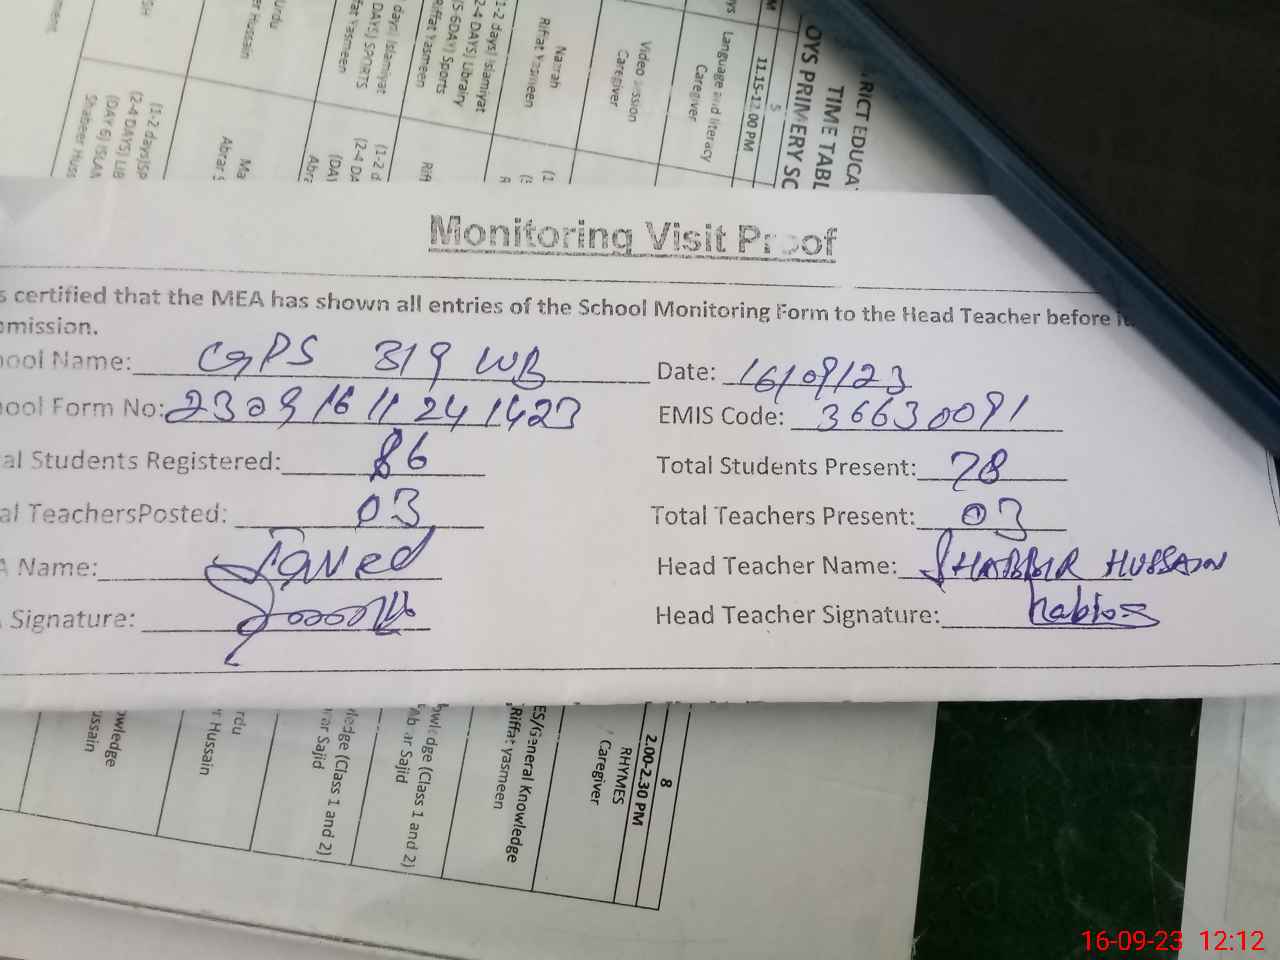 RICT EDUCA
TIME TABL
OYS PRIMERY SC
5
11.15-12.00 PM
Language and literacy
Caregiver
Video session
Caregiver
Nazrah
Riffat Yasmeen
(1-2 days) Islamiyat
(2-4 DAYS) Librairy
(5-6DAY) Sports
Riffat Yasmeen
days) Islamiyat
DAYS) SPORTS
fat Yasmeen
urdu
er Hussain
(1-2 d
(2-4 DA
(DAY
Abra
Rift
Ma
Abrar S
(1-2 days)Sp
(2-4 DAYS) LIB
(DAY 6) ISLAM
Shabeer Huss
Monitoring Visit Proof
s certified that the MEA has shown all entries of the School Monitoring Form to the Head Teacher before it
omission.
ool Name: GPS 319 WB Date: 16/09/23
ool Form No: 23 09 16 11 24 1423 EMIS Code: 36630091
al Students Registered: 86 Total Students Present: 78
al TeachersPosted: 03 Total Teachers Present: 03
A Name: Javed Head Teacher Name: SHABBIR HUSSAIN
Signature: Head Teacher Signature:
8
2.00-2.30 PM
RHYMES
Caregiver
ES/General Knowledge
Riffat yasmeen
owledge (Class 1 and 2)
Abrar Sajid
ledge (Class 1 and 2)
rar Sajid
rdu
r Hussain
owledge
ussain
16-09-23 12:12